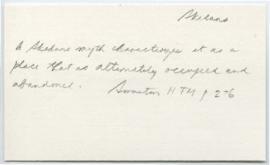 Skedans
A Skedans myth characterizes it as a
place that as alternately occupied and
abandoned. Swanton HTM p 276